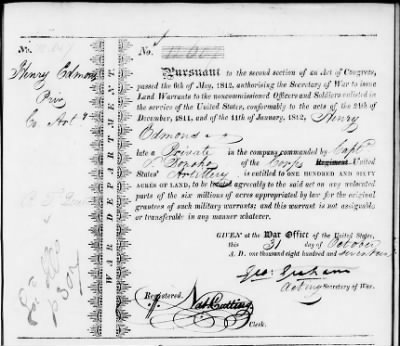 No.
Henry Edmons
Priv
Co Art
WAR DEPARTMENT.
No.
Pursuant to the second section of an Act of Congress,
passed the 6th of May, 1812, authorising the Secretary of War to issue
Land Warrants to the noncommissioned Officers and Soldiers enlisted in
the service of the United States, conformably to the acts of the 24th
December, 1811, and of the 11th of January, 1812, Henry
Edmons
late a Private in the company commanded by Capt
of the Corps Regiment United
States' Artillery is entitled to ONE HUNDRED AND SIXTY
ACRES OF LAND, to be located agreeably to the said act on any unlocated
part of the six millions of acres appropriated by law for the original
grantees of such military warrants; and this warrant is not assignable
or transferable in any manner whatever.
GIVEN at the War Office of the United States,
this 31 day of October
A. D. one thousand eight hundred and seventeen
Geo: Graham
Acting Secretary of War.
Registered,
Nat Cutting
Clerk.